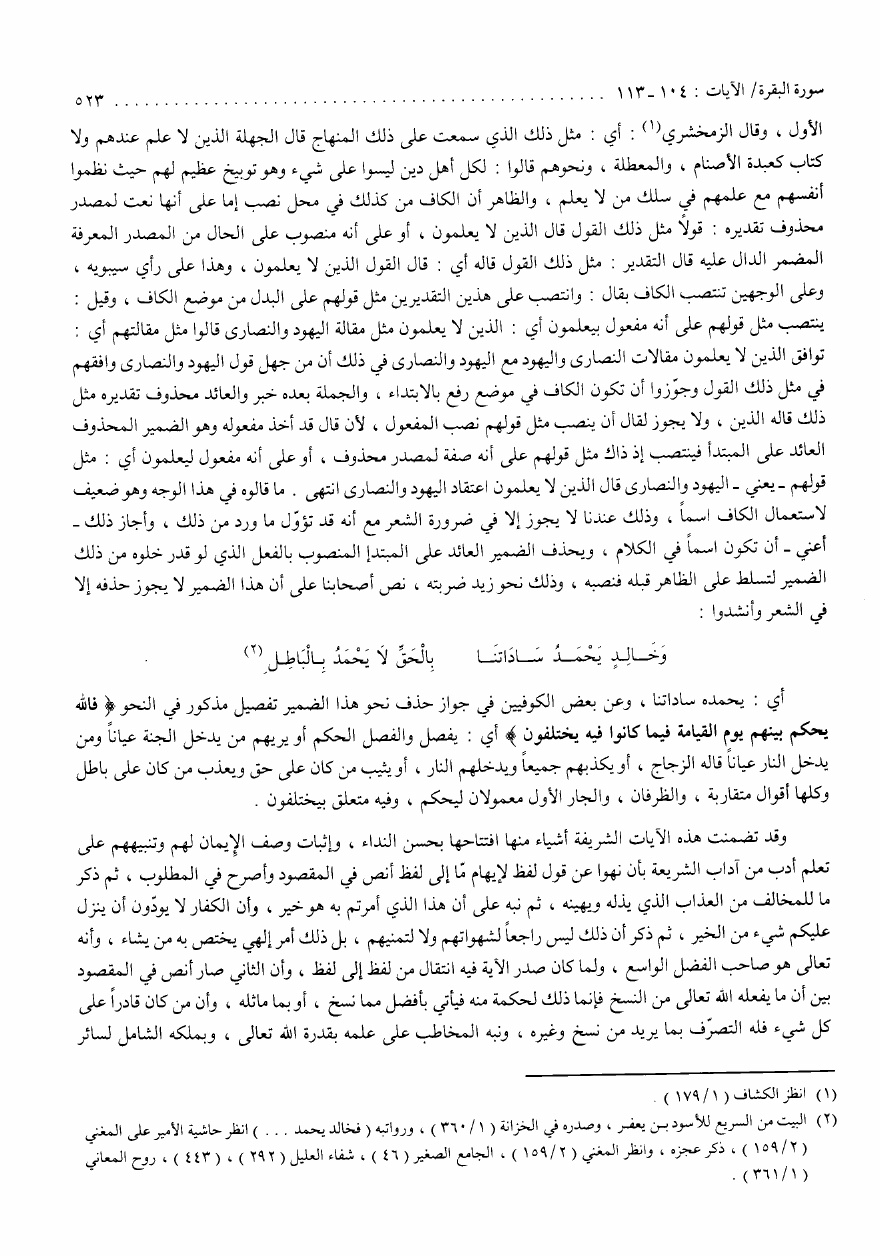 سورة البقرة/ الآيات : ١٠٤ - ١١٣ ............................................. ٥٢٣
الأول ، وقال الزمخشري(١) : أي : مثل ذلك الذي سمعت على ذلك المنهاج قال الجهلة الذين لا علم عندهم ولا
كتاب كعبدة الأصنام ، والمعطلة ، ونحوهم قالوا : لكل أهل دين ليسوا على شيء وهو توبيخ عظيم لهم حيث نظموا
أنفسهم مع علمهم في سلك من لا يعلم ، والظاهر أن الكاف من كذلك في محل نصب إما على أنها نعت لمصدر
محذوف تقديره : قولًا مثل ذلك القول قال الذين لا يعلمون ، أو على أنه منصوب على الحال من المصدر المعرفة
المضمر الدال عليه قال التقدير : مثل ذلك القول قاله أي : قال القول الذين لا يعلمون ، وهذا على رأي سيبويه ،
وعلى الوجهين تنتصب الكاف بقال : وانتصب على هذين التقديرين مثل قولهم على البدل من موضع الكاف ، وقيل :
ينتصب مثل قولهم على أنه مفعول بيعلمون أي : الذين لا يعلمون مثل مقالة اليهود والنصارى قالوا مثل مقالتهم أي :
توافق الذين لا يعلمون مقالات النصارى واليهود مع اليهود والنصارى في ذلك أن من جهل قول اليهود والنصارى وافقهم
في مثل ذلك القول وجوّزوا أن تكون الكاف في موضع رفع بالابتداء ، والجملة بعده خبر والعائد محذوف تقديره مثل
ذلك قاله الذين ، ولا يجوز لقال أن ينصب مثل قولهم نصب المفعول ، لأن قال قد أخذ مفعوله وهو الضمير المحذوف
العائد على المبتدأ فينتصب إذ ذاك مثل قولهم على أنه صفة لمصدر محذوف ، أو على أنه مفعول ليعلمون أي : مثل
قولهم - يعني - اليهود والنصارى قال الذين لا يعلمون اعتقاد اليهود والنصارى انتهى . ما قالوه في هذا الوجه وهو ضعيف
لاستعمال الكاف اسماً ، وذلك عندنا لا يجوز إلا في ضرورة الشعر مع أنه قد تؤوّل ما ورد من ذلك ، وأجاز ذلك -
أعني - أن تكون اسماً في الكلام ، ويحذف الضمير العائد على المبتدإ المنصوب بالفعل الذي لو قدر خلوه من ذلك
الضمير لتسلط على الظاهر قبله فنصبه ، وذلك نحو زيد ضربته ، نص أصحابنا على أن هذا الضمير لا يجوز حذفه إلا
في الشعر وأنشدوا :
وَخَـالِـدٍ يَحْمَـدُ سَـادَاتنَـا بِالْحَقِّ لَا يَحْمَدُ بِـالْبَاطِـلِ(٢)
أي : يحمده ساداتنا ، وعن بعض الكوفيين في جواز حذف نحو هذا الضمير تفصيل مذكور في النحو ﴿ فالله
يحكم بينهم يوم القيامة فيما كانوا فيه يختلفون ﴾ أي : يفصل والفصل الحكم أو يريهم من يدخل الجنة عياناً ومن
يدخل النار عياناً قاله الزجاج ، أو يكذبهم جميعاً ويدخلهم النار ، أو يثيب من كان على حق ويعذب من كان على باطل
وكلها أقوال متقاربة ، والظرفان ، والجار الأول معمولان ليحكم ، وفيه متعلق بيختلفون .
وقد تضمنت هذه الآيات الشريفة أشياء منها افتتاحها بحسن النداء ، وإثبات وصف الإيمان لهم وتنبيههم على
تعلم أدب من آداب الشريعة بأن نهوا عن قول لفظ لإيهام مّا إلى لفظ أنص في المقصود وأصرح في المطلوب ، ثم ذكر
ما للمخالف من العذاب الذي يذله ويهينه ، ثم نبه على أن هذا الذي أمرتم به هو خير ، وأن الكفار لا يودّون أن ينزل
عليكم شيء من الخير ، ثم ذكر أن ذلك ليس راجعاً لشهواتهم ولا لتمنيهم ، بل ذلك أمر إلهي يختص به من يشاء ، وأنه
تعالى هو صاحب الفضل الواسع ، ولما كان صدر الآية فيه انتقال من لفظ إلى لفظ ، وأن الثاني صار أنص في المقصود
بين أن ما يفعله الله تعالى من النسخ فإنما ذلك لحكمة منه فيأتي بأفضل مما نسخ ، أو بما ماثله ، وأن من كان قادراً على
كل شيء فله التصرّف بما يريد من نسخ وغيره ، ونبه المخاطب على علمه بقدرة الله تعالى ، وبملكه الشامل لسائر
(١) انظز الكشاف ( ١/١٧٩ ) .
(٢) البيت من السريع للأسود بـن يعفـر ، وصدره في الخزانة ( ١/٣٦٠ ) ، ورواتبه ( فخالد يحمد ... ) انظر حاشية الأمير على المغني
( ٢/١٥٩ ) ، ذكر عجزه ، وانظر المغني ( ٢/١٥٩ ) ، الجامع الصغير ( ٤٦ ) ، شفاء العليل ( ٢٩٢ ) ، ( ٤٤٣ ) ، روح المعاني
( ١/٣٦١ ) .